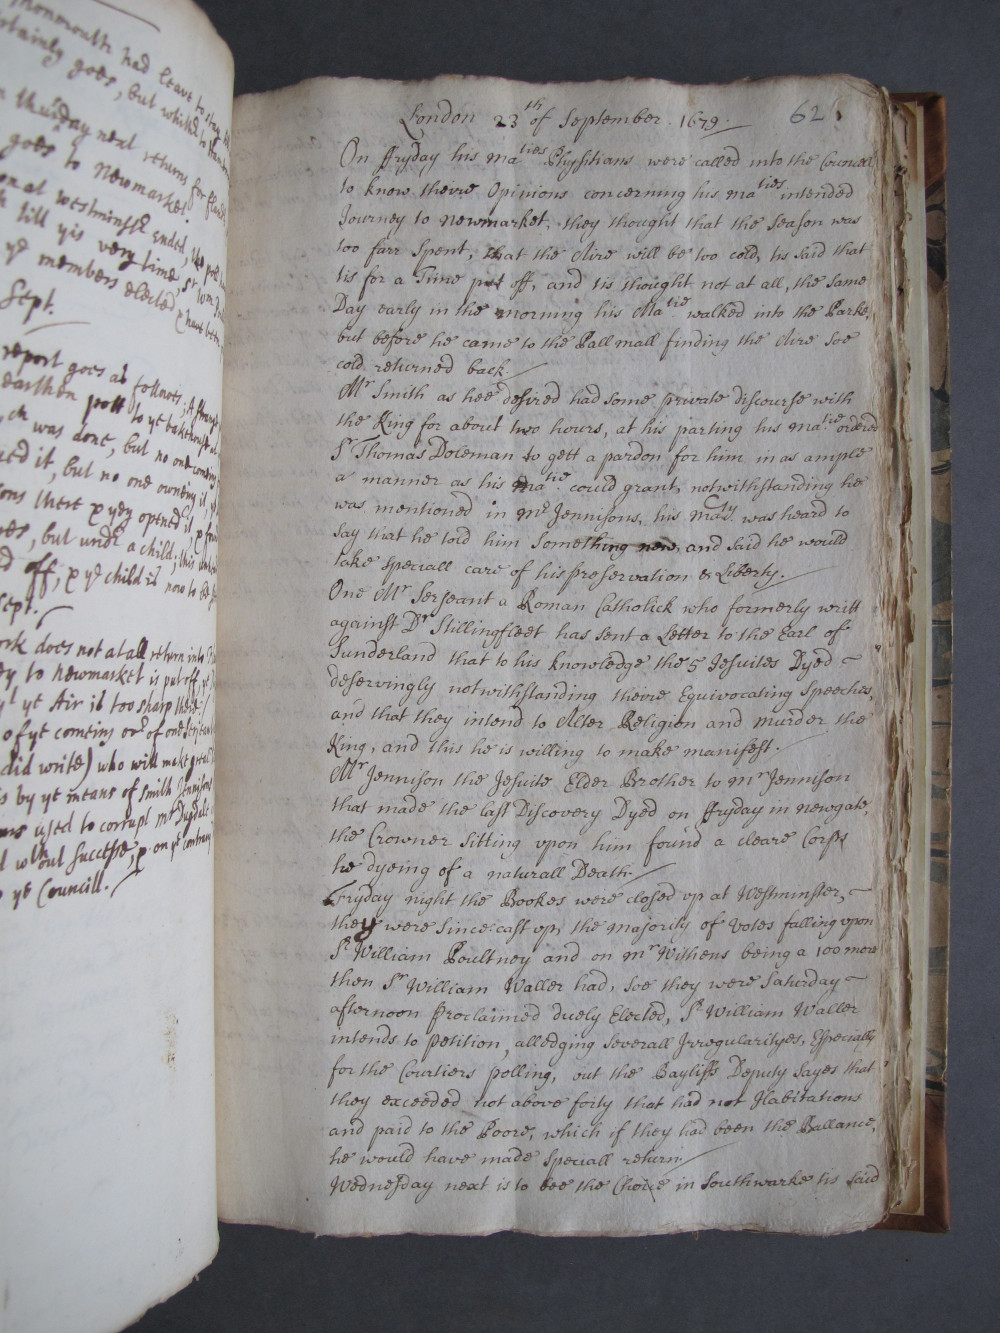 Monmouth had leave to stay
certainly goes, but whither
thursday next returns for
goes to Newmarket
at westminstr Ended, the poll
till yis very time, Sr Wm
ye members elected & have
Sept.
report goes as follows; A
earthen pott to ye
ch was done, but no one coming
it, but no one owning it,
there & yey opened it, &
but undr a child; this
off, & ye child is now to be
Sept.
ork does not at all return into
to Newmarket is put off, ye
yt ye Air is too sharp there
of ye coming ovr of one Serjeant
did write) who will make great
by ye means of Smith Jennisons
used to corrupt Mr Dugdale
without Successe, & on ye contrary
ye Councill.
London 23th of September. 1679.
62
On ffryday his Maties Physitians were called into the Councell
to know theire Opinions concerning his maties intended
Journey to Newmarket, they thought that the Season was
too farr Spent, that the Aire will be too cold, tis said that
tis for a Time put off, and tis thought not at all, the same
Day early in the morning his Matie walked into the Parke,
but before he came to the Pall mall finding the Aire soe
cold returned back.
Mr Smith as hee desired had some private discourse with
the King for about two hours, at his parting his matie ordered
Sr Thomas Doleman to gett a pardon for him in as ample
a manner as his Matie could grant, notwithstanding he
was mentioned in Mr Jennisons, his Maty was heard to
say that he told him Something new, and said he would
take speciall care of his preservation & Liberty.
One Mr Serjeant a Roman Catholick who formerly writt
against Dr Stillingfleet has sent a Letter to the Earl of
Sunderland that to his knowledge the 5 Jesuites Dyed
deservingly notwithstanding theire Equivocating Speeches,
and that they intend to Alter Religion and murder the
King, and this he is willing to make manifest.
Mr Jennison the Jesuite Elder Brother to mr Jennison
that made the last Discovery Dyed on ffryday in newgate,
the Crowner Sitting upon him found a cleare Corps
he dyeing of a naturall Death.
Fryday night the Bookes were closed up at Westminster,
they were since cast up, the majority of votes falling upon
Sr William Poultney and on mr Withens being a 100 more
then Sr William Waller had, soe they were Saturday
afternoon proclaimed duely Elected, Sr William Waller
intends to petition, alledging Severall Irregularityes, Especially
for the Courtiers polling, but the Bayliffs Deputy Sayes that
they exceeded not above forty that had not Habitations
and paid to the Poore, which if they had been the Ballance,
he would have made speciall return.
Wednesday next is to bee the Choice in Southwarke tis said